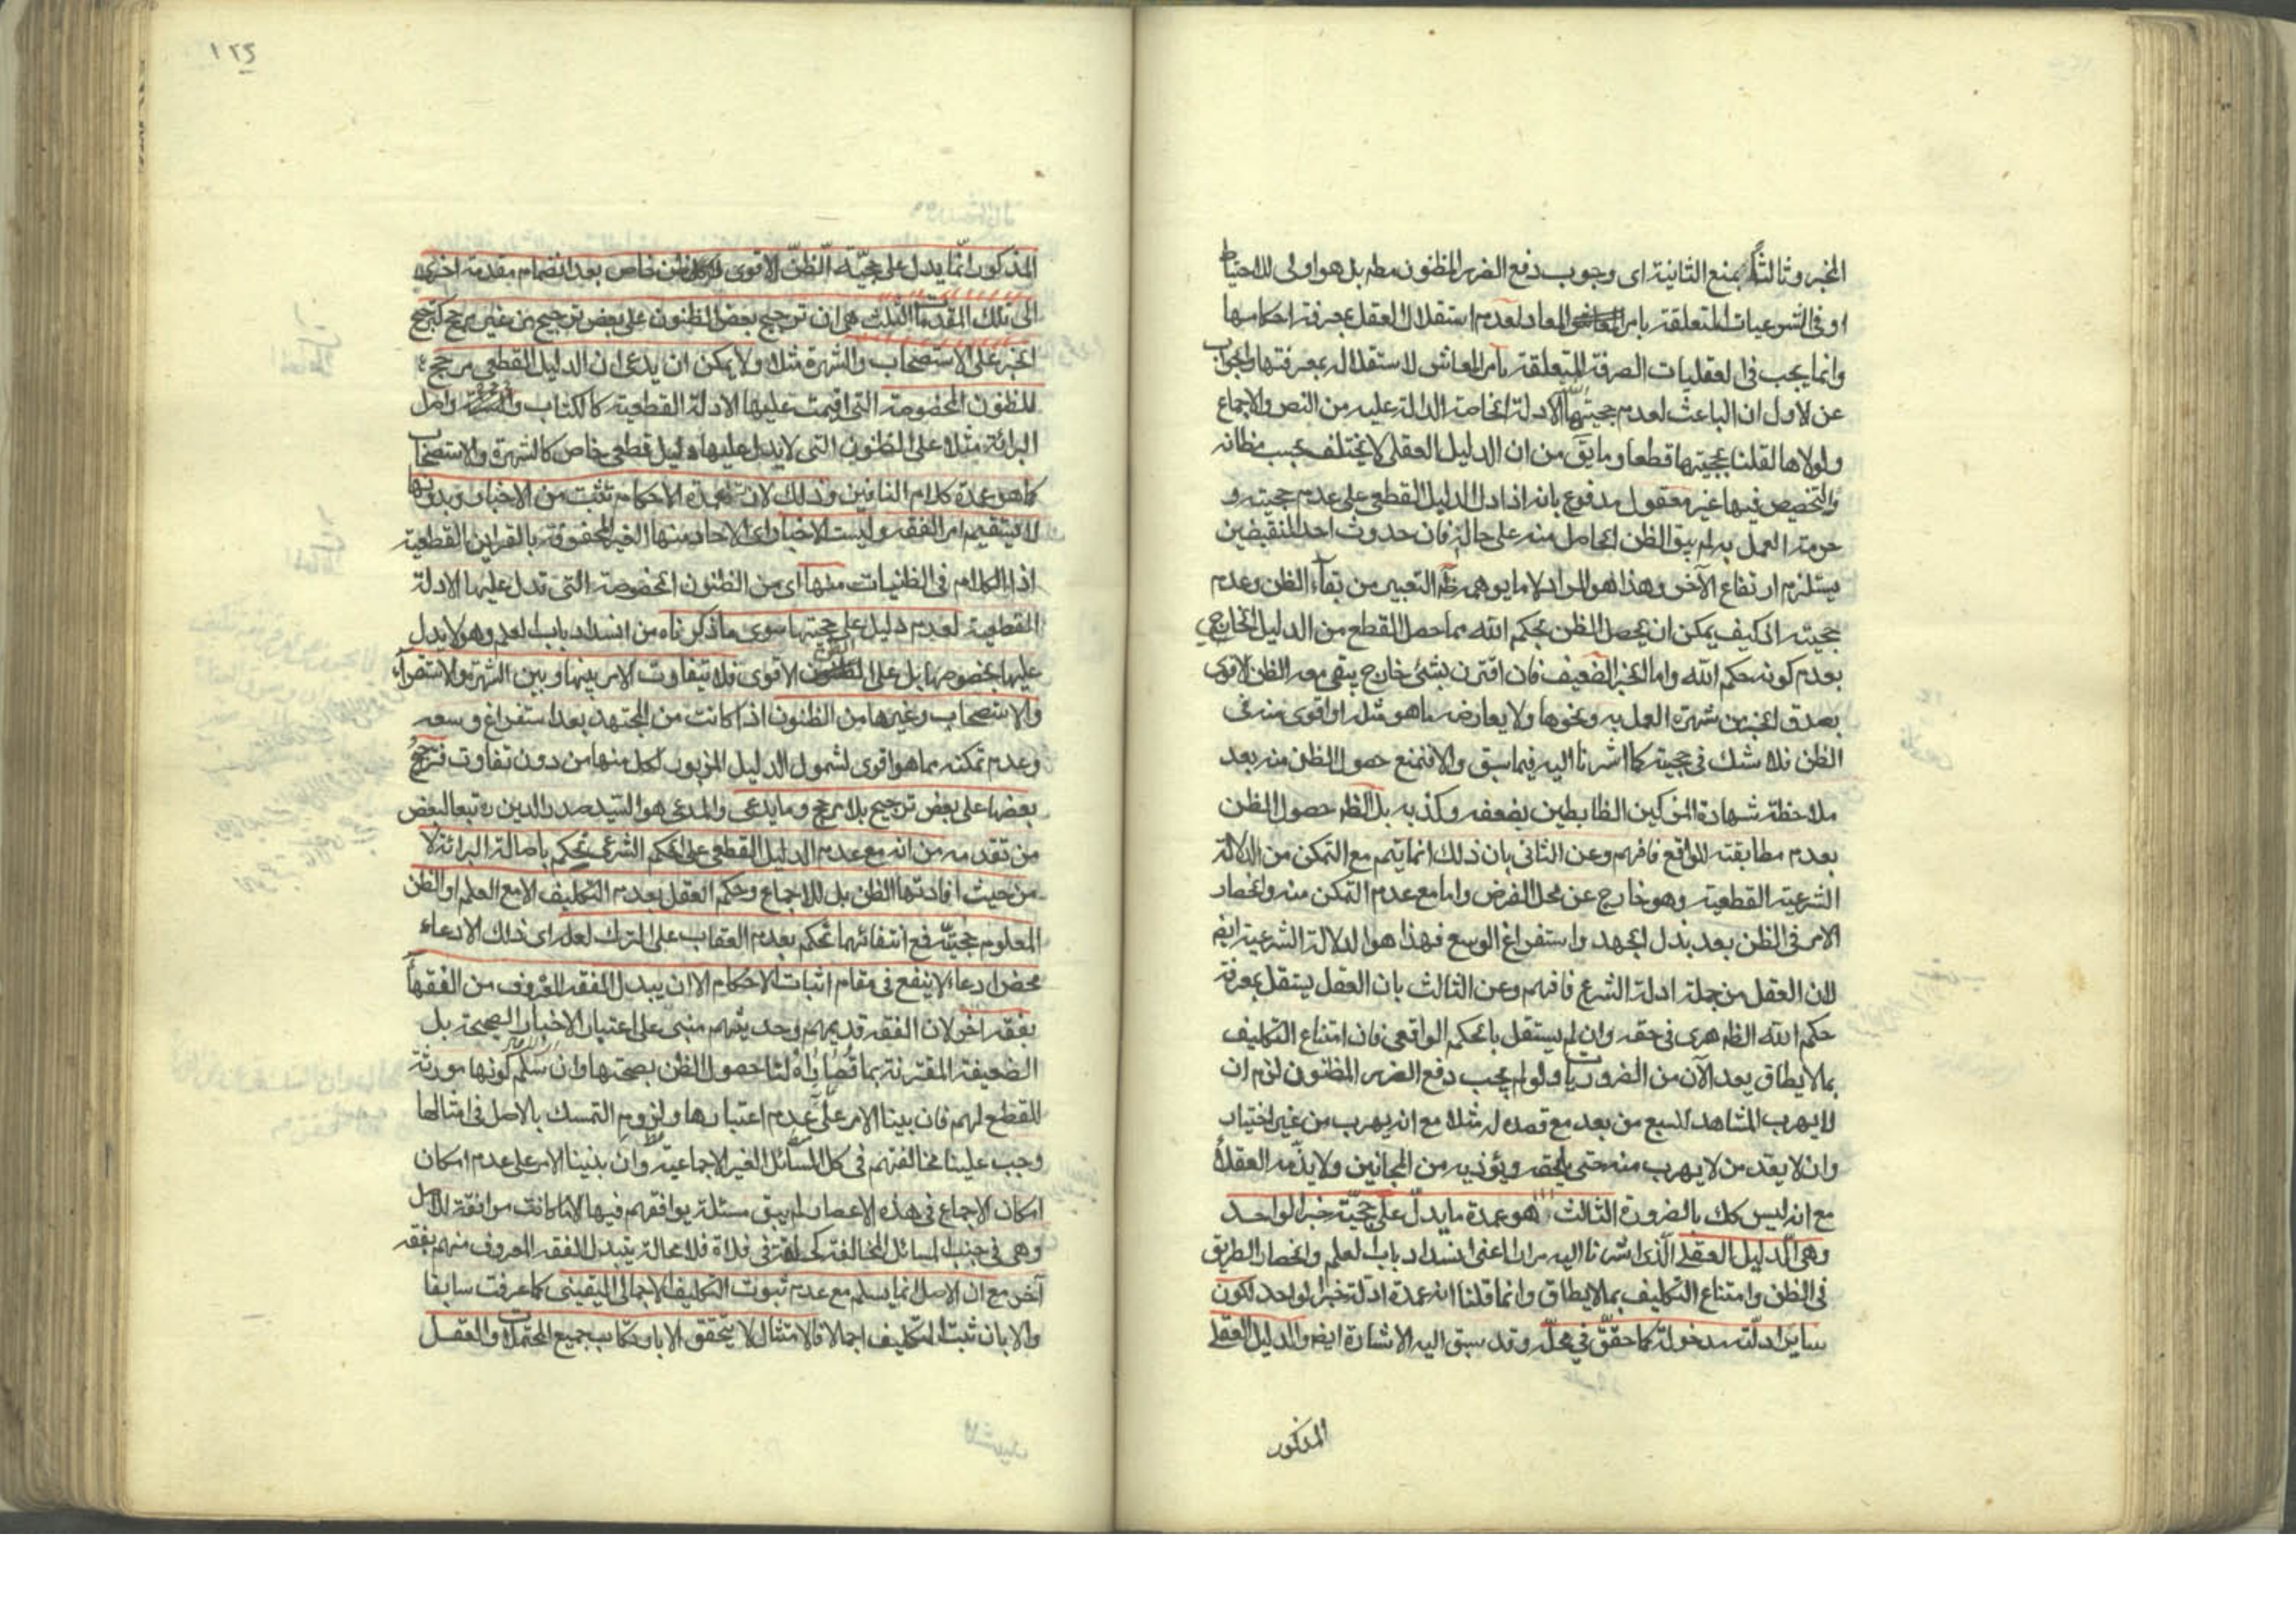 المخبر وثالثا بمنع الثانية اى وجوب دفع الضرر المظنون مطم بل هو اولى للاحتياط
او فى الشرعيات المتعلقة بامر المعاد لعدم استقلال العقل بمعرفة احكامها
وانما يجب فى العقليات الصرفة المتعلقة بامر المعاش لاستقلاله بمعرفتها والجواب
عن الاول ان الباعث لعدم حجيتها الادلة الخاصة الدالة عليه من النص والاجماع
ولولاها لقلنا بحجيتها قطعا وما يق من ان الدليل العقلى لا يختلف بحسب مظانه
والتخصيص فيها غير معقول مدفوع بانه اذا دل الدليل القطعى على عدم حجيته و
حرمة العمل به لم يبق الظن الحاصل منه على حاله فان حدوث احد النقيضين
يستلزم ارتفاع الآخر وهذا هو المراد لا ما يوهمه ظه التعبير من بقاء الظن وعدم
حجيته اذ كيف يمكن ان يحصل الظن بحكم الله مما حصل القطع من الدليل الخارجى
بعدم كونه حكم الله واما الخبر الضعيف فان اقترن بشئ خارج يبقى معه الظن الاقوى
بصدق الخبر من شهرة العمل به ونحوها ولا يعارضه ما هو مثله او اقوى منه فى
الظن فلا شك فى حجيته كما اشرنا اليه فيما سبق والا فنمنع حصول الظن منه بعد
ملاحظة شهادة المزكين الضابطين بضعفه وكذبه بل الظم حصول الظن
بعدم مطابقته للواقع فافهم وعن الثانى بان ذلك انما يتم مع التمكن من الدلالة
الشرعية القطعية وهو خارج عن محل الفرض واما مع عدم التمكن منه وانحصار
الامر فى الظن بعد بذل الجهد واستفراغ الوسع فهذا هو الدلالة الشرعية ايضم
لان العقل من جملة ادلة الشرع فافهم وعن الثالث بان العقل يستقل بمعرفة
حكم الله الظاهرى فى حقه وان لم يستقل بالحكم الواقعى فان امتناع التكليف
بما لا يطاق يعد الآن من الضروريات ولو لم يجب دفع الضرر المظنون لزم ان
لا يهرب المشاهد للسبع من بعد مع قصده له مثلا مع انه يهرب من غير اختيار
وان لا يعد من لا يهرب منه حتى يلحقه ويؤذيه من المجانين ولا يذمه العقلاء
مع انه ليس كك بالضرورة الثالث هو عمدة ما يدل على حجية خبر الواحد
وهى الدليل العقلى الذى اشرنا اليه مرارا اعنى انسداد باب العلم وانحصار الطريق
فى الظن وامتناع التكليف بما لا يطاق وانما قلنا انه عمدة ادلة خبر الواحد لكون
ساير ادلته مدخولة كما حقق فى محله وقد سبق اليه الاشارة ايضم والدليل العقلى
المذكور
١٢٥
المذكور انما يدل على حجية الظن الاقوى لا كل ظن خاص بعد انضمام مقدمة اخرى
الى تلك المقدمات الثلث هى ان ترجيح بعض الظنون على بعض ترجيح من غير مرجح كترجيح
الخبر على الاستصحاب والشهرة مثلا ولا يمكن ان يدعى ان الدليل القطعى مرجح
للظنون المخصوصة التى اقيمت عليها الادلة القطعية كالكتاب والسنة واصل
البرائة مثلا على الظنون التى لا يدل عليها دليل قطعى خاص كالشهرة والاستصحاب
كما هو عمدة كلام النافين وذلك لان عمدة الاحكام تثبت من الاخبار وبدونها
لا يستقيم امر الفقه وليست الاخبار اى الاحاد منها الغير المحفوفة بالقراين القطعية
اذ الكلام فى الظنيات منها اى من الظنون المخصوصة التى تدل عليها الادلة
القطعية لعدم دليل على حجيتها سوى ما ذكرناه من انسداد باب العلم وهو لا يدل
عليها بخصوصها بل على الظن الاقوى فلا يتفاوت الامر بينها وبين الشهرة والاستقراء
والاستصحاب وغيرها من الظنون اذا كانت من المجتهد بعد استفراغ وسعه
وعدم تمكنه مما هو اقوى لشمول الدليل المزبور لكل منها من دون تفاوت فترجيح
بعضها على بعض ترجيح بلا مرجح وما يدعى والمدعى هو السيد صدر الدين ره تبعا لبعض
من تقدمه من انه مع عدم الدليل القطعى على الحكم الشرعى نحكم باصالة البرائة لا
من حيث افادتها الظن بل للاجماع وحكم العقل بعدم التكليف الا مع العلم او الظن
المعلوم حجيته فمع انتفائهما نحكم بعدم العقاب على الترك لعله اى ذلك الادعاء
محض ادعاء لا ينفع فى مقام اثبات الاحكام الا ان يبدل الفقه المعروف من الفقهاء
بفقه اخر لان الفقه قديمهم وحديثهم مبنى على اعتبار الاخبار الصحيحة بل
الضعيفة المقترنة بما حصول الظن بصحتها وان سلم كونها مورثة
للقطع لهم فان بينا الامر على عدم اعتبارها ولزوم التمسك بالاصل فى امثالها
وجب علينا مخالفتهم فى كل المسائل الغير الاجماعية وان بنينا الامر على عدم امكان
امكان الاجماع فى هذه الاعصار لم يبق مسئلة يوافقهم فيها الا ما كانت موافقة للاصل
وهى فى جنب المسائل المخالفة كحلقة فى فلاة فلا محالة يتبدل الفقه المعروف منهم بفقه
آخر مع ان الاصل انما يسلم مع عدم ثبوت التكليف الاجمالى اليقينى كما عرفت سابقا
والا بان ثبت التكليف اجمالا فالامتثال لا يتحقق الا بارتكاب جميع المحتملات والعقل